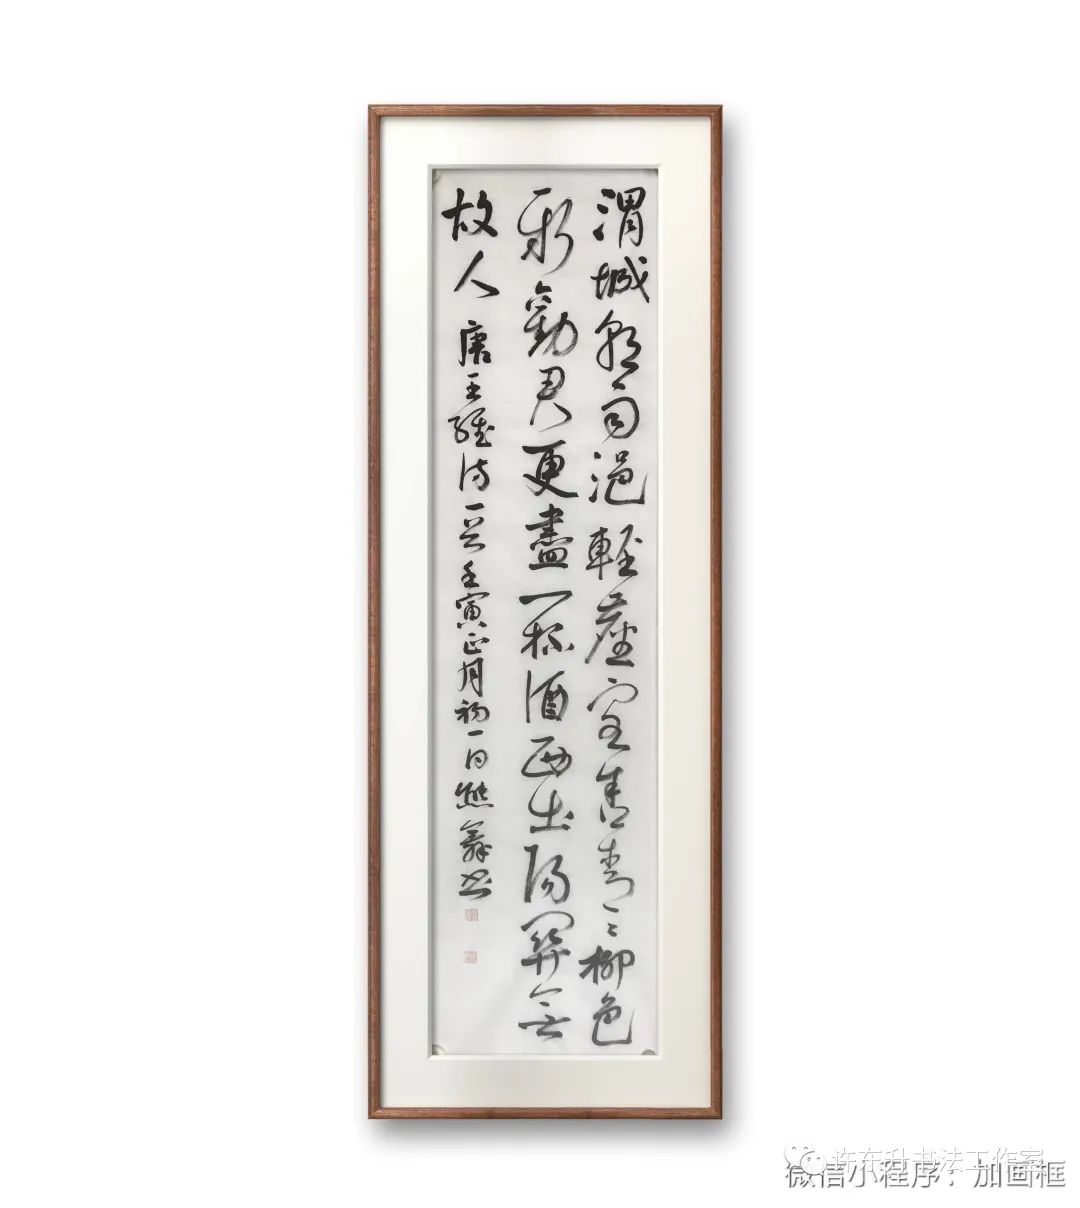 渭城朝雨浥輕塵客舍青々柳色
新勸君更盡一杯酒西出陽關無
故人 唐王維詩一首壬寅正月初一日熊翁書
许东升书法工作室
微信小程序：加画框